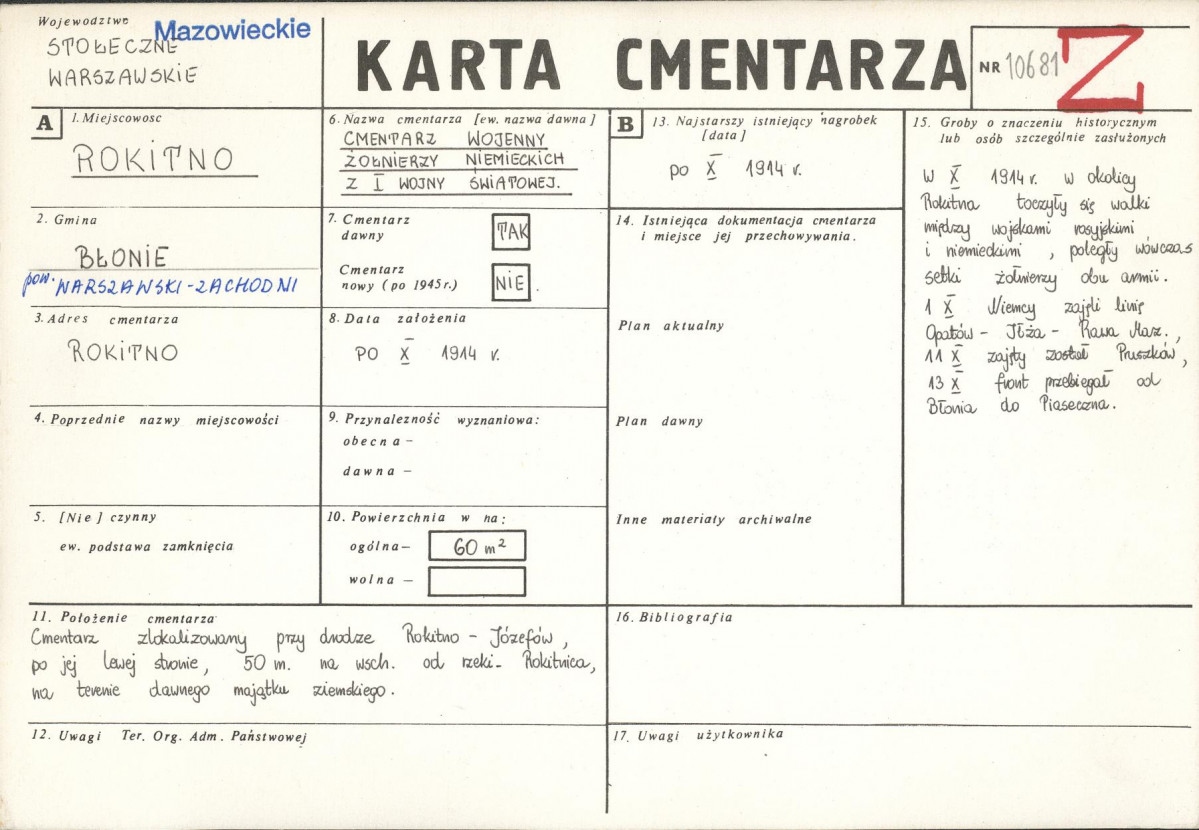 Województwo
STOŁECZNE Mazowieckie
WARSZAWSKIE
KARTA CMENTARZA
NR 10681 Z
A
1. Miejscowosc
ROKITNO
2. Gmina
BŁONIE
pow. WARSZAWSKI-ZACHODNI
3. Adres cmentarza
ROKITNO
4. Poprzednie nazwy miejscowości
5. [Nie] czynny
ew. podstawa zamknięcia
6. Nazwa cmentarza [ew. nazwa dawna]
CMENTARZ WOJENNY
ŻOŁNIERZY NIEMIECKICH
Z I WOJNY ŚWIATOWEJ.
7. Cmentarz
dawny TAK
Cmentarz
nowy (po 1945 r.) NIE.
8. Data założenia
PO X 1914 r.
9. Przynalezność wyznaniowa:
obecna –
dawna –
10. Powierzchnia w ha:
ogólna – 60 m²
wolna –
11. Położenie cmentarza
Cmentarz zlokalizowany przy drodze Rokitno - Józefów,
po jej lewej stronie, 50 m. na wsch. od rzeki - Rokitnica,
na terenie dawnego majątku ziemskiego.
12. Uwagi Ter. Org. Adm. Państwowej
B
13. Najstarszy istniejący nagrobek
[data]
po X 1914 r.
14. Istniejąca dokumentacja cmentarza
i miejsce jej przechowywania.
Plan aktualny
Plan dawny
Inne materiały archiwalne
15. Groby o znaczeniu historycznym
lub osób szczególnie zasłużonych
W X 1914 r. w okolicy
Rokitna toczyły się walki
między wojskami rosyjskimi
i niemieckimi, poległy wówczas
setki żołnierzy obu armii.
1 X Niemcy zajęli linię
Opatów - Iłża - Rawa Maz.,
11 X zajęty został Pruszków,
13 X front przebiegał od
Błonia do Piaseczna.
16. Bibliografia
17. Uwagi użytkownika